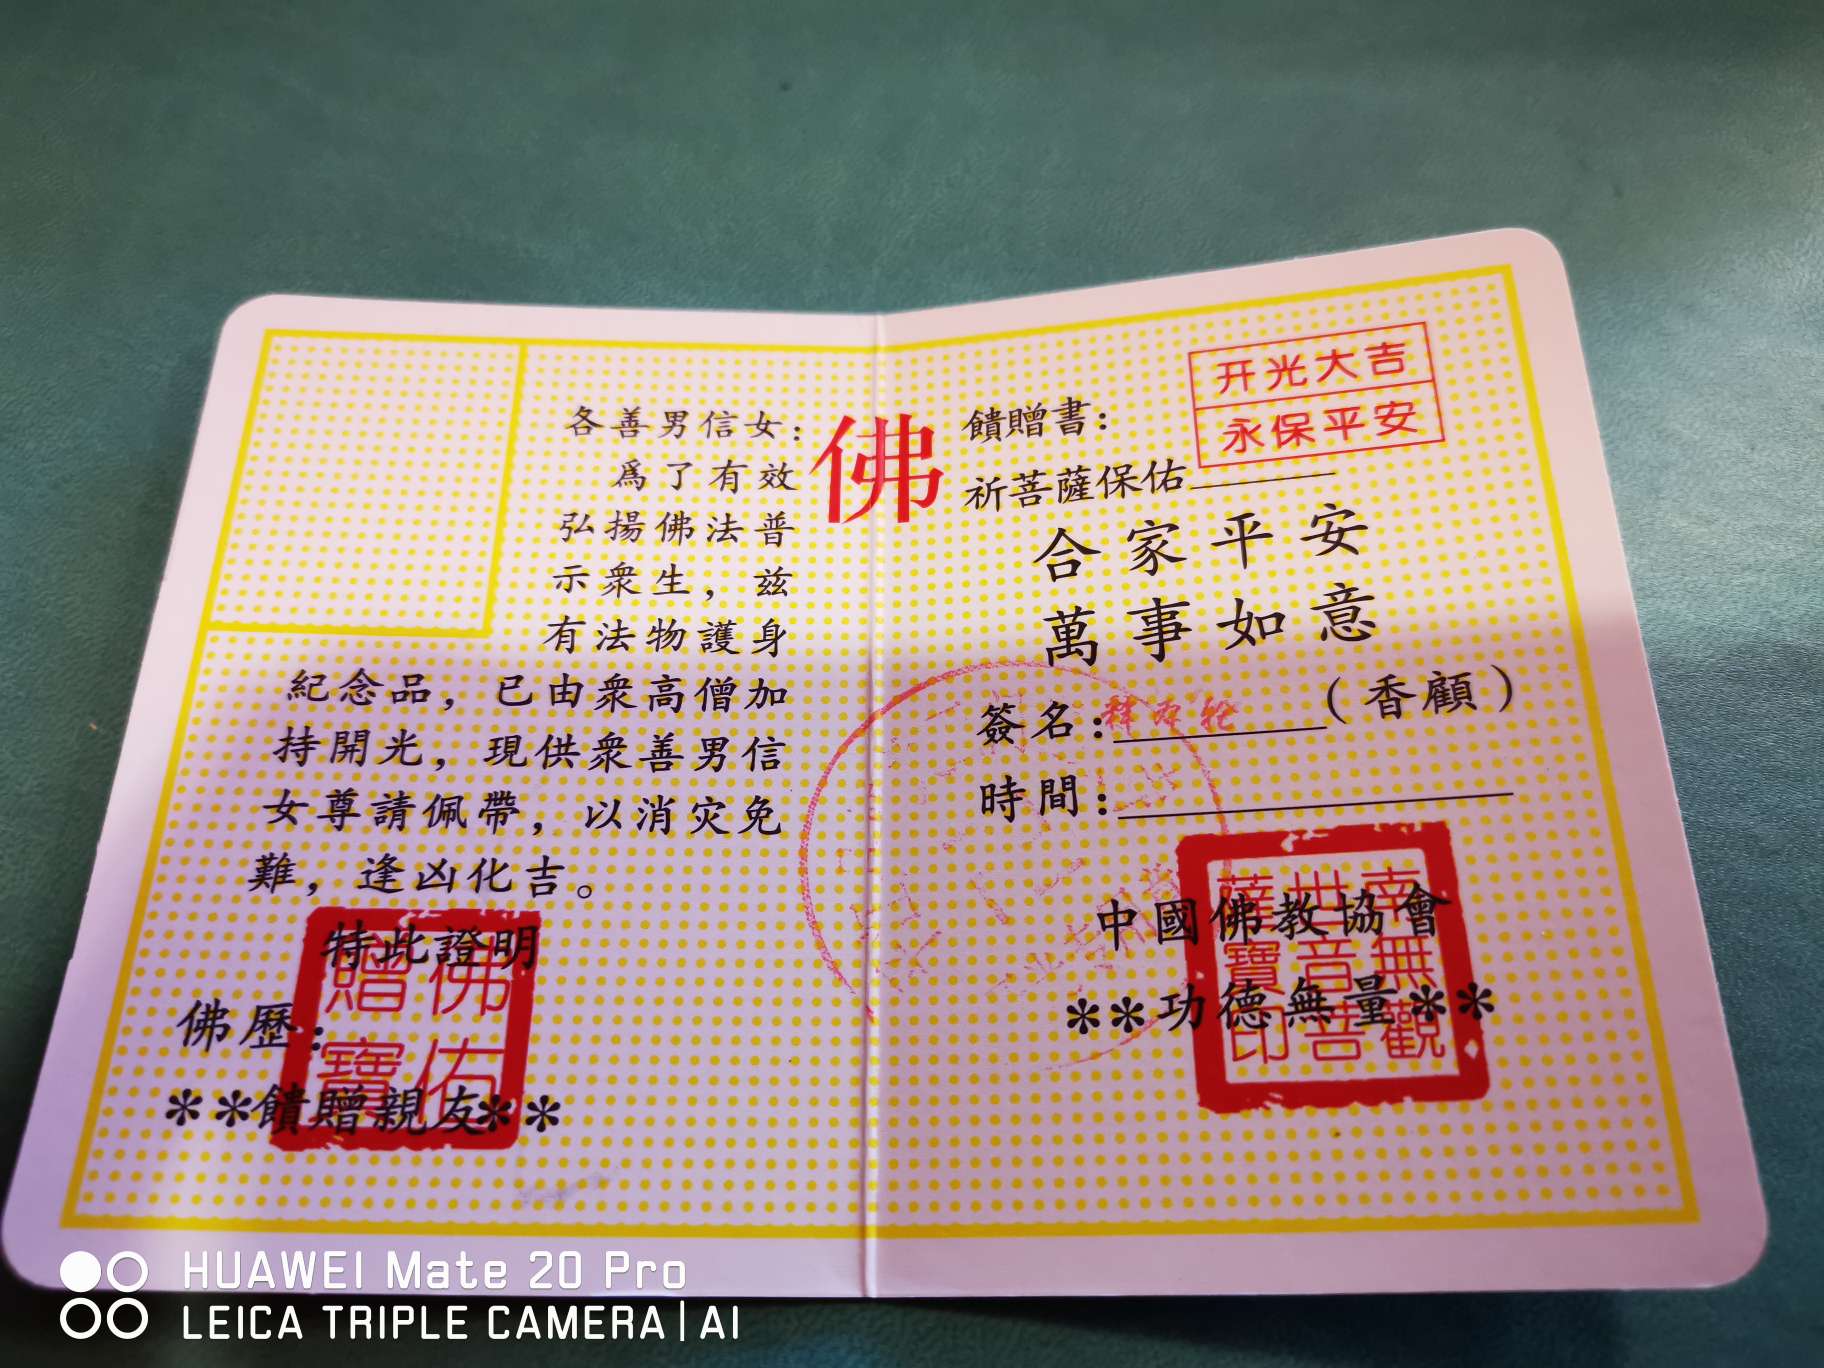 各善男信女：
爲了有效
弘揚佛法普
示衆生，兹
有法物護身
紀念品，已由衆高僧加
持開光，現供衆善男信
女尊請佩帶，以消灾免
難，逢凶化吉。
特此證明
佛歷：
**饋贈親友**
佛佑
贈寶
佛
开光大吉
永保平安
饋贈書：
祈菩薩保佑
合家平安
萬事如意
簽名：（香顧）
時間：
中國佛教協會
**功德無量**
南無觀
世音菩
薩寶印
HUAWEI Mate 20 Pro
LEICA TRIPLE CAMERA|AI